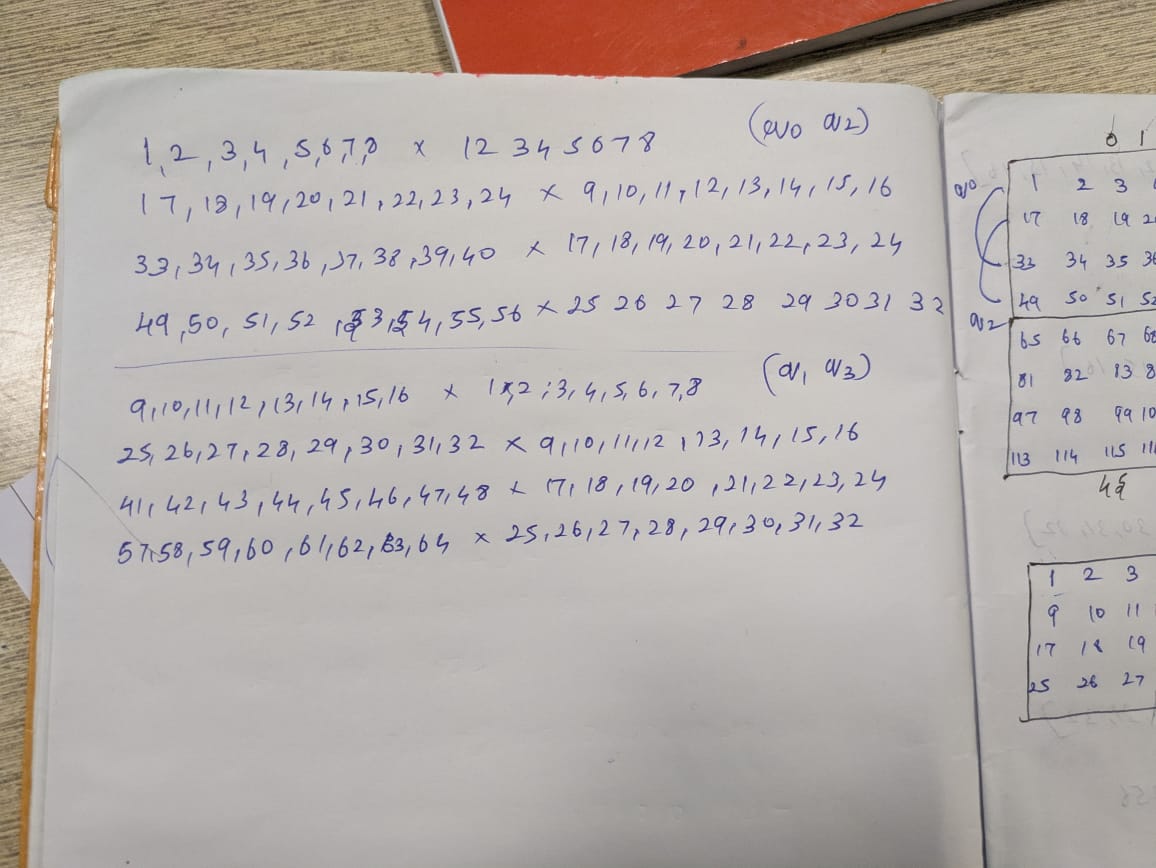 (a0 a2)
1,2,3,4,5,6,7,8 x 1 2 3 4 5 6 7 8
17,18,19,20,21,22,23,24 x 9,10,11,12,13,14,15,16
33,34,35,36,37,38,39,40 x 17,18,19,20,21,22,23,24
49,50,51,52,53,54,55,56 x 25 26 27 28 29 30 31 32
(a1 a3)
9,10,11,12,13,14,15,16 x 1,2,3,4,5,6,7,8
25,26,27,28,29,30,31,32 x 9,10,11,12,13,14,15,16
41,42,43,44,45,46,47,48 x 17,18,19,20,21,22,23,24
57,58,59,60,61,62,63,64 x 25,26,27,28,29,30,31,32
0 1
a0 1 2 3
17 18 19
33 34 35
49 50 51
a2
65 66 67
81 82 83
97 98 99
113 114 115
1 2 3
9 10 11
17 18 19
25 26 27